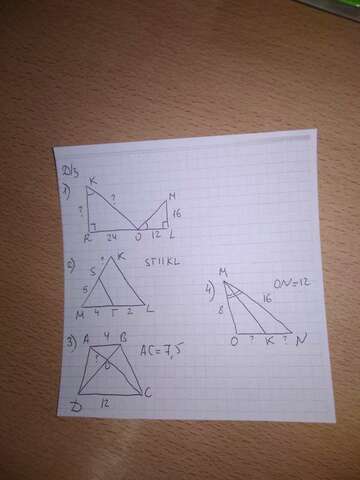 Д/з
1)
K
?
?
M
16
R
24
O
12
L
2)
K
?
S
ST || KL
5
M
4
T
2
L
3)
A
4
B
AC = 7,5
?
O
D
12
C
4)
M
ON = 12
16
8
O
?
K
?
N